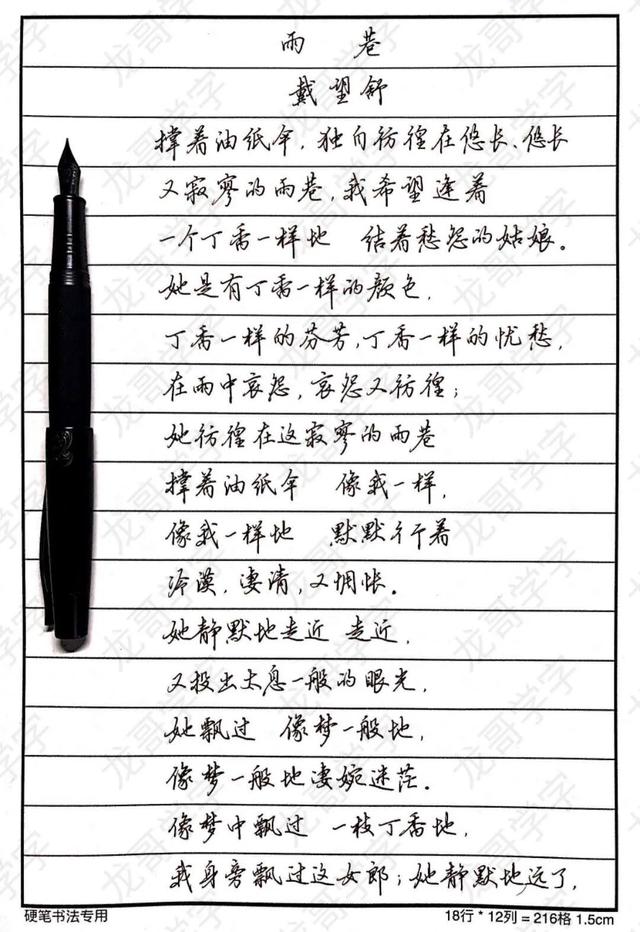 雨 巷
戴望舒
撑着油纸伞，独自彷徨在悠长、悠长
又寂寥的雨巷，我希望逢着
一个丁香一样地 结着愁怨的姑娘。
她是有丁香一样的颜色，
丁香一样的芬芳，丁香一样的忧愁，
在雨中哀怨，哀怨又彷徨；
她彷徨在这寂寥的雨巷
撑着油纸伞 像我一样，
像我一样地 默默彳亍着
冷漠，凄清，又惆怅。
她静默地走近 走近，
又投出太息一般的眼光，
她飘过 像梦一般地，
像梦一般地凄婉迷茫。
像梦中飘过 一枝丁香地，
我身旁飘过这女郎；她静默地远了，
硬笔书法专用 18行 * 12列 = 216格 1.5cm
龙哥学字